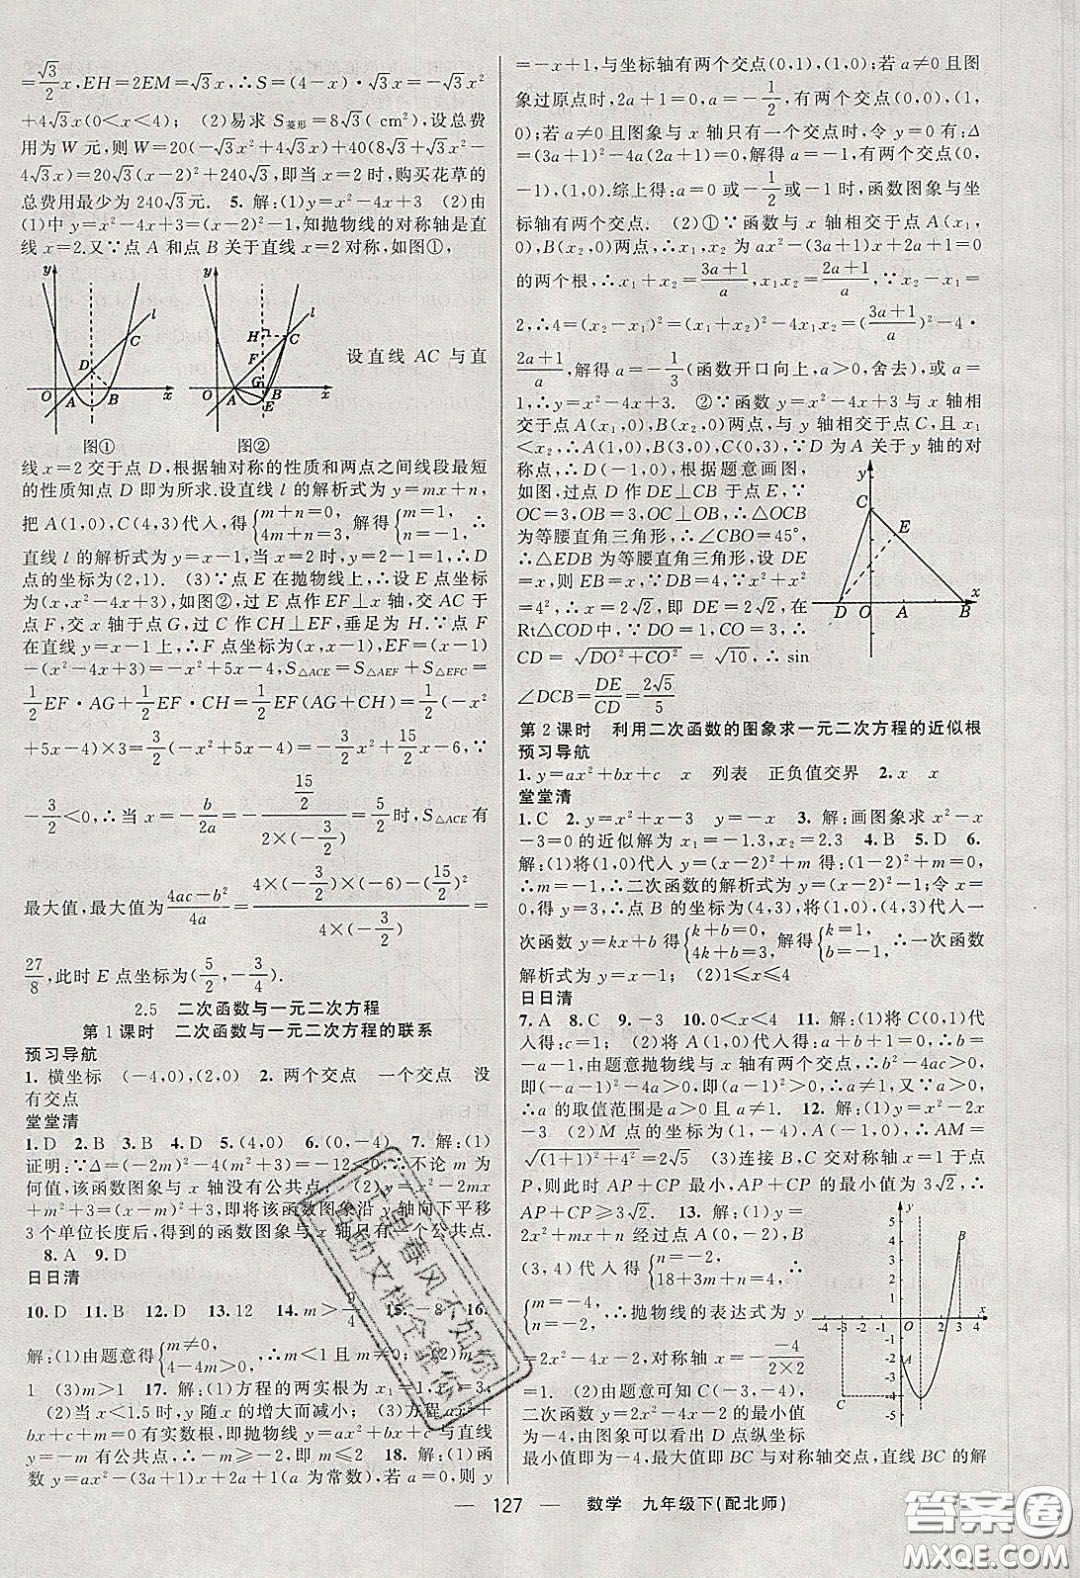 =√3/2x,EH=2EM=√3x,∴S=(4-x)·√3x=-√3x²
+4√3x(0<x<4); (2)易求S菱形=8√3(cm²),设总费
用为W元,则W=20(-√3x²+4√3x)+40(8√3+√3x²
-4√3x)=20√3(x-2)²+240√3,即当x=2时,购买花草的
总费用最少为240√3元. 5. 解:(1)y=x²-4x+3 (2)由
(1)中y=x²-4x+3=(x-2)²-1,知抛物线的对称轴是直
线x=2.又∵点A和点B关于直线x=2对称,如图①,
设直线AC与直
图① 图②
线x=2交于点D,根据轴对称的性质和两点之间线段最短
的性质知点D即为所求.设直线l的解析式为y=mx+n,
把A(1,0),C(4,3)代入,得{m+n=0,4m+n=3,解得{m=1,n=-1,∴
直线l的解析式为y=x-1,当x=2时,y=2-1=1,∴D
点的坐标为(2,1). (3)∵点E在抛物线上,∴设E点坐标
为(x,x²-4x+3),如图②,过E点作EF⊥x轴,交AC于
点F,交x轴于点G,过C作CH⊥EF,垂足为H.∵点F
在直线y=x-1上,∴F点坐标为(x,x-1),EF=(x-1)
-(x²-4x+3)=-x²+5x-4,S△ACE=S△AEF+S△EFC=
1/2EF·AG+1/2EF·CH=1/2EF(AG+CH)=1/2(-x²
+5x-4)×3=-3/2x²+15/2x-6,∵
-3/2<0,∴当x=-b/2a=-(15/2)/(2×(-3/2))=5/2时,S△ACE有
最大值,最大值为(4ac-b²)/4a=(4×(-3/2)×(-6)-(15/2)²)/(4×(-3/2))=
27/8,此时E点坐标为(5/2,-3/4).
2.5 二次函数与一元二次方程
第1课时 二次函数与一元二次方程的联系
预习导航
1. 横坐标 (-4,0),(2,0) 2. 两个交点 一个交点 没
有交点
堂堂清
1. D 2. B 3. B 4. D 5. (4,0) 6. (0,-4) 7. 解:(1)
证明:∵Δ=(-2m)²-4(m²+3)=-12<0,∴不论m为
何值,该函数图象与x轴没有公共点. (2)y=x²-2mx+
m²+3=(x-m)²+3,即将该函数图象沿y轴向下平移
3个单位长度后,得到的函数图象与x轴只有一个公共点.
8. A 9. D
日日清
10. D 11. B 12. D 13. 12 14. m> 15. -8 16.
解:(1)由题意得{m≠0, ∴m<1且m≠0.
1 (3)m>1 17. 解:(1)方程的两实根为x₁= =3.
(2)当x<1.5时,y随x的增大而减小; (3)方程ax²+
bx+c+m=0有实数根,即抛物线y=ax²+bx+c与直线
y=-m有公共点,∴-m≥-2,即m≤2 18. 解:(1)函
数y=ax²-(3a+1)x+2a+1(a为常数),若a=0,则y
=-x+1,与坐标轴有两个交点(0,1),(1,0);若a≠0且图
象过原点时,2a+1=0,a=-1/2,有两个交点(0,0),(1,
0);若a≠0且图象与x轴只有一个交点时,令y=0有:Δ
=(3a+1)²-4a(2a+1)=0,解得a=-1,有两个交点(0,
-1),(1,0).综上得:a=0或-1/2或-1时,函数图象与坐
标轴有两个交点. (2)①∵函数与x轴相交于点A(x₁,
0),B(x₂,0)两点,∴x₁,x₂为ax²-(3a+1)x+2a+1=0
的两个根,∴x₁+x₂=(3a+1)/a,x₁x₂=(2a+1)/a,∵x₂-x₁=
2,∴4=(x₂-x₁)²=(x₁+x₂)²-4x₁x₂=((3a+1)/a)²-4·
(2a+1)/a,解得a=-1/3(函数开口向上,a>0,舍去)或a=
1,∴y=x²-4x+3. ②∵函数y=x²-4x+3与x轴相
交于点A(x₁,0),B(x₂,0)两点,与y轴相交于点C,且x₁
<x₂,∴A(1,0),B(3,0),C(0,3).∵D为A关于y轴的对
称点,∴D(-1,0),根据题意画图,
如图,过点D作DE⊥CB于点E,∵
OC=3,OB=3,OC⊥OB,∴△OCB
为等腰直角三角形,∴∠CBO=45°,
∴△EDB为等腰直角三角形,设DE
=x,则EB=x,∵DB=4,∴x²+x²
=4²,∴x=2√2,即DE=2√2,在
Rt△COD中,DO=1,CO=3,∴
CD=√(DO²+CO²)=√10,∴sin
∠DCB=DE/CD=2√5/5
第2课时 利用二次函数的图象求一元二次方程的近似根
预习导航
1. y=ax²+bx+c x 列表 正负值交界 2. x x
堂堂清
1. C 2. y=x²+x-3 y=-x 3. 解:画图象求x²-x
-3=0的近似解为x₁=-1.3,x₂=2.3 4. B 5. D 6.
解:(1)将(1,0)代入y=(x-2)²+m得:(1-2)²+m=0,
∴m=-1,∴二次函数的解析式为y=(x-2)²-1;令x=
0,得y=3,∴点B的坐标为(4,3),将(1,0),(4,3)代入一
次函数y=kx+b得{k+b=0,4k+b=3,解得{k=1,b=-1,∴一次函数
解析式为y=x-1; (2)1≤x≤4
日日清
7. A 8. C 9. -3 10. 0<x<4 11. 解:(1)将C(0,1)代
入得:c=1; (2)将A(1,0)代入得:a+b+1=0,∴b=
-a-1,由题意抛物线与x轴有两个交点,∴b²-4ac>0,
即(-a-1)²-4a>0,即(a-1)²>0,∴a≠1,又∵a>0,
∴a的取值范围是a>0且a≠1. 12. 解:(1)y=x²-2x
-3 (2)M点的坐标为(1,-4),A(-1,0),∴AM=
√((1+1)²+4²)=2√5 (3)连接B,C交对称轴x=1于点
P,则此时AP+CP最小,AP+CP的最小值为3√2,∴
AP+CP≥3√2. 13. 解:(1)∵y=
2x²+mx+n经过点A(0,-2),B
(3,4)代入得{n=-2,18+3m+n=4,∴
{m=-4,n=-2,∴抛物线的表达式为y
=2x²-4x-2,对称轴为x=-(-4)/(2×2)
=1. (2)由题意可知C(-3,-4),
二次函数y=2x²-4x-2的最小值
为-4,由图象可以看出D点纵坐标
最小值即为-4,最大值即BC与对称轴交点,直线BC的解
— 127 — 数学 九年级下(配北师)
答案圈
MXQE.COM